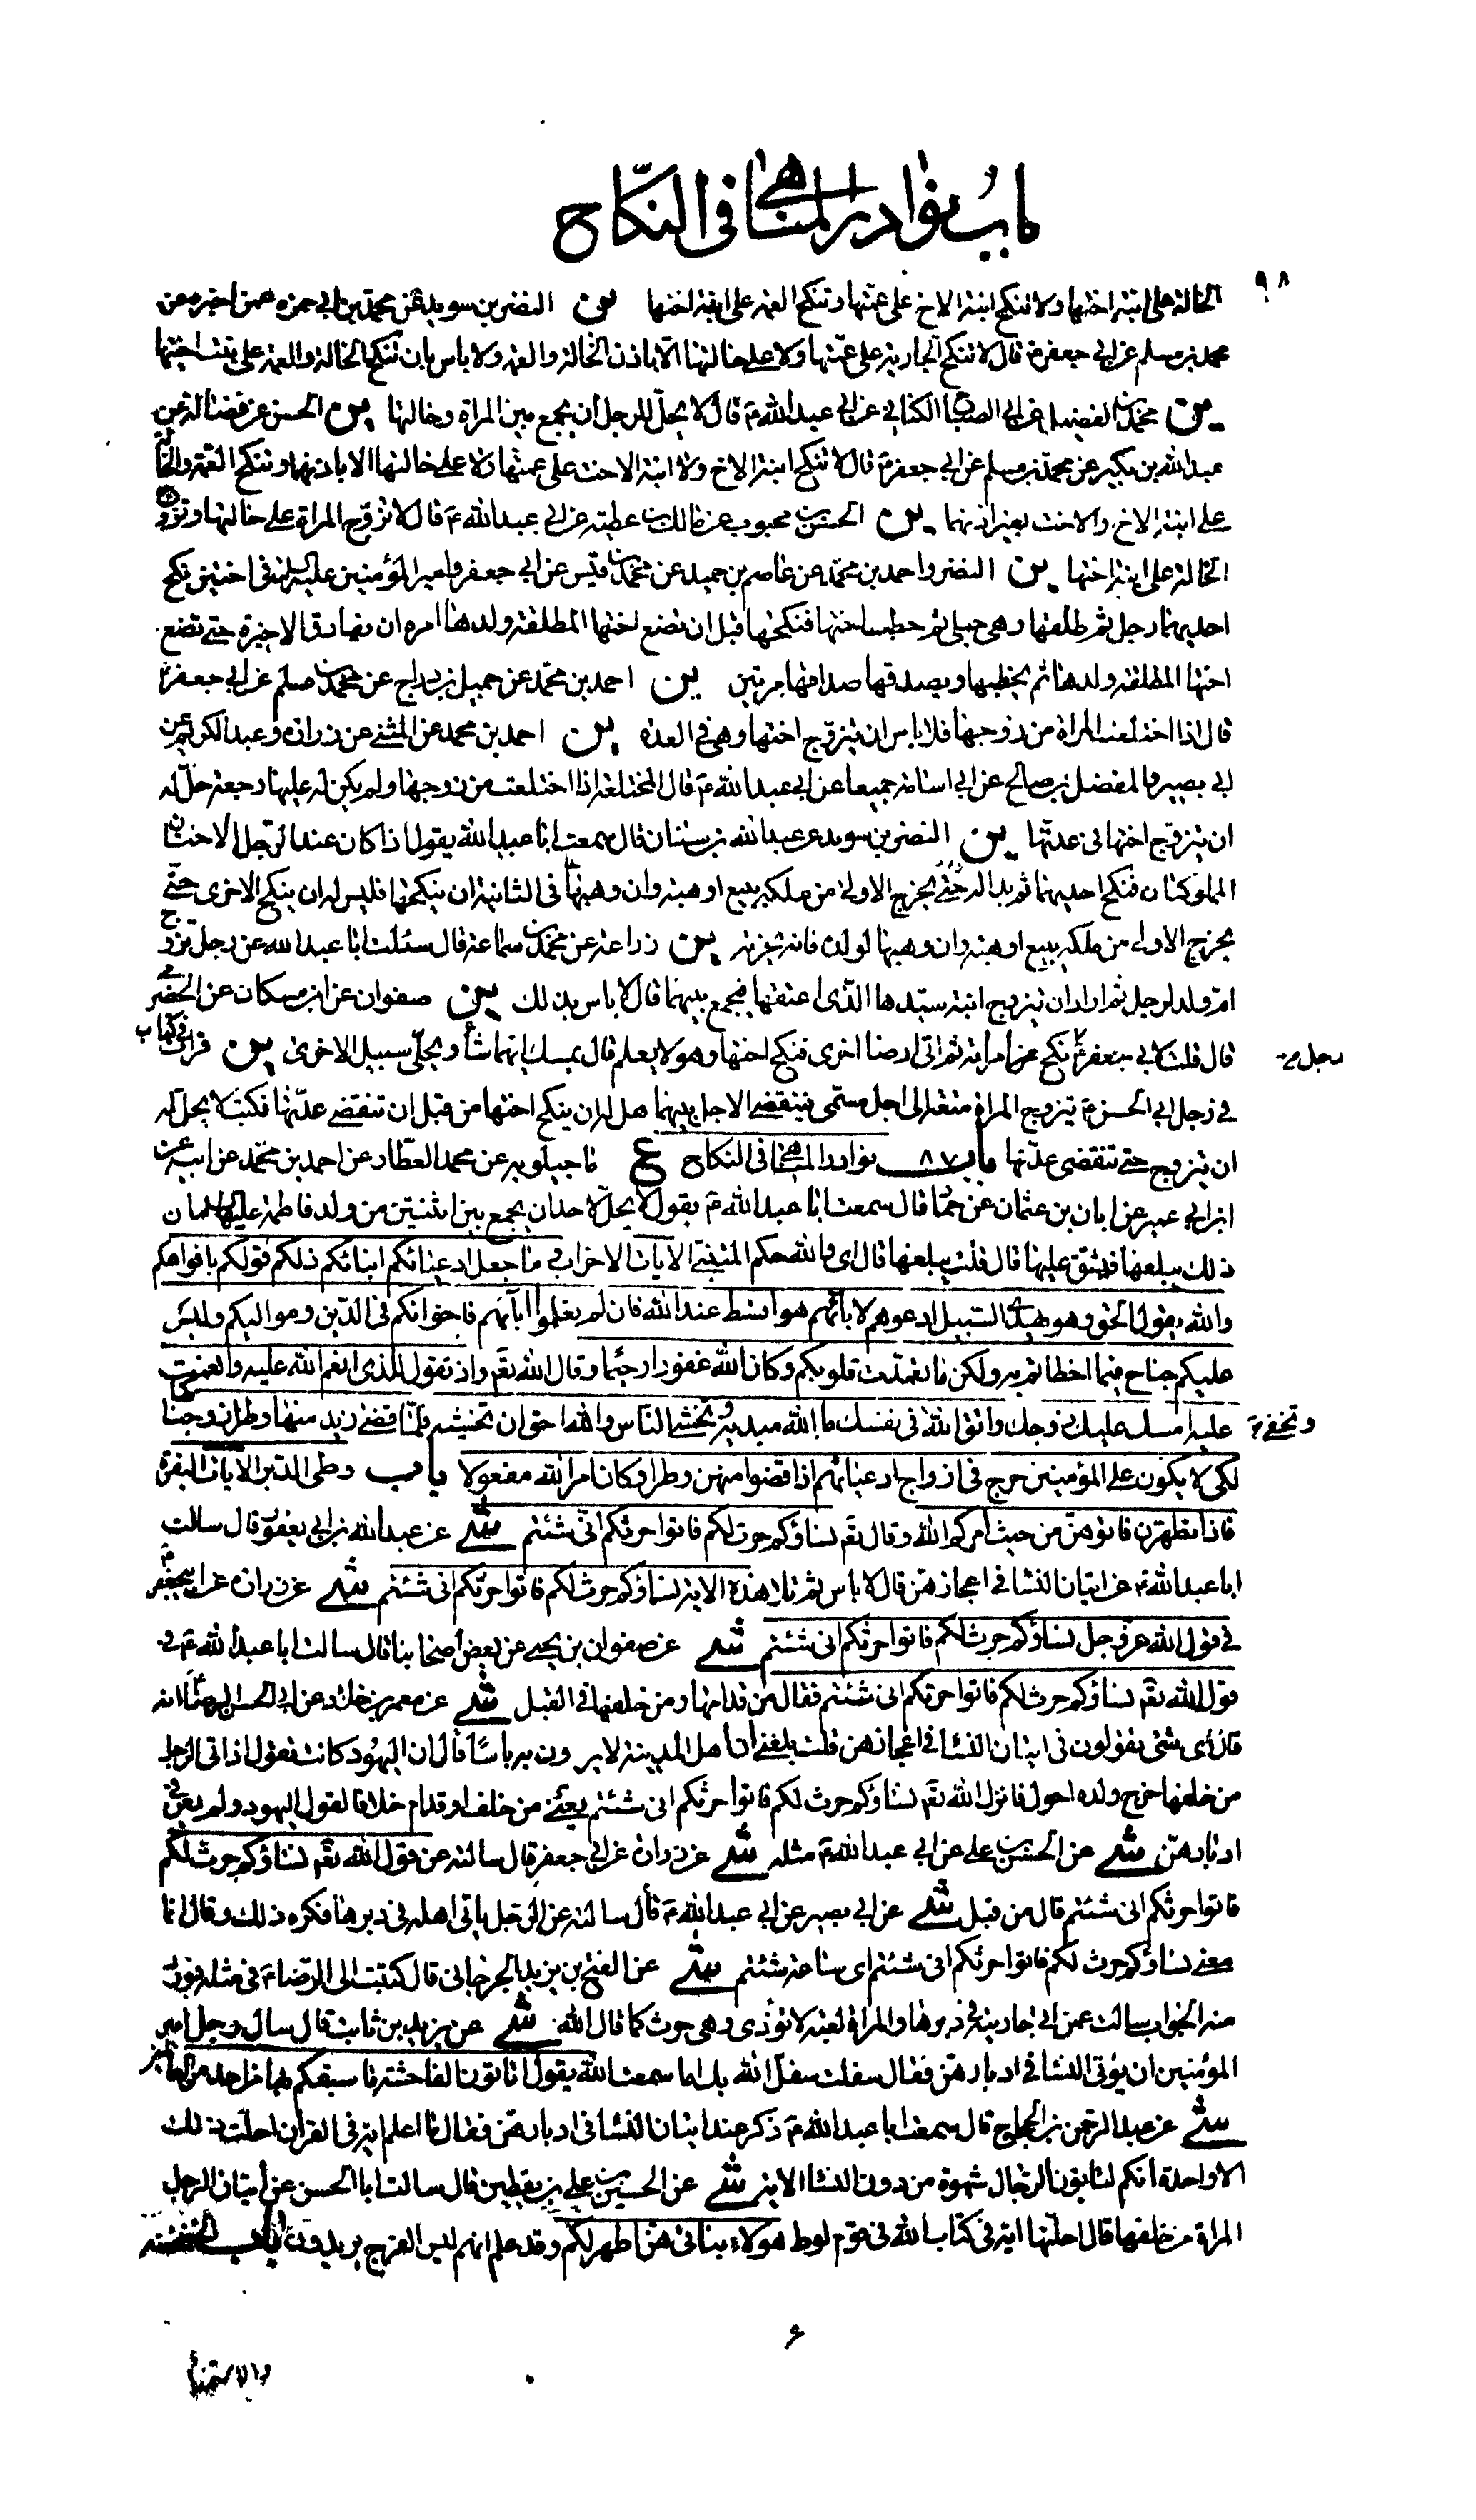 باب نوادر المناهي في النكاح
٩٨
الخالة على ابنة اختها ولا تنكح ابنة الاخ على عمتها وتنكح العمة على ابنة اخيها ين النضر بن سويد عن محمد بن ابي حمزه عمن اخبره عن
محمد بن مسلم عن ابي جعفر ع قال لا تنكح الجارية على عمتها ولا على خالتها الا باذن الخالة والعمة ولا باس بان تنكح الخالة والعمة على بنت اختها
ين محمد بن الفضيل عن ابي الصباح الكناني عن ابي عبد الله ع قال لا يحل للرجل ان يجمع بين المراة وخالتها ين الحسن عن فضالة عن
عبد الله بن بكير عن محمد بن مسلم عن ابي جعفر ع قال لا تنكح ابنة الاخ ولا ابنة الاخت على عمتها ولا على خالتها الا باذنهما وتنكح العمة والخالة
على ابنة الاخ والاخت بغير اذنهما ين الحسن بن محبوب عن مالك بن عطيه عن ابي عبد الله ع قال لا تزوج المراة على خالتها وتزوج
الخالة على ابنة اختها ين النضر واحمد بن محمد عن عاصم بن حميد عن محمد بن قيس عن ابي جعفر ع امير المؤمنين عليه السلم في اختين نكح
احديهما رجل ثم طلقها وهي حبلى ثم خطب اختها فنكحها قبل ان تضع اختها المطلقة ولدها امره ان يفارق الاخيرة حتى تضع
اختها المطلقة ولدها ثم يخطبها ويصدقها صداقها مرتين ين احمد بن محمد عن جميل بن دراج عن محمد بن مسلم عن ابي جعفر ع
قال اذا اختلعت المراة من زوجها فلا باس ان يتزوج اختها وهي في العدة ين احمد بن محمد عن المثنى عن زرارة وعبد الكريم عن
ابي بصير والمفضل بن صالح عن ابي اسامة جميعا عن ابي عبد الله ع قال المختلعة اذا اختلعت من زوجها ولم يكن له عليها رجعة حل له
ان يتزوج اختها في عدتها ين النضر بن سويد عن عبد الله بن سنان قال سمعت ابا عبد الله يقول اذا كان عند الرجل الاختان
المملوكتان فنكح احديهما ثم بدا له حتى يخرج الاولى من ملكه ببيع او هبة وان وهبها في الثانية ان ينكحها فليس له ان ينكح الاخرى حتى
يخرج الاولى من ملكه ببيع او هبة وان وهبها لولده فانه يجزيه ين زراعة عن محمد بن سماعة قال سئلت ابا عبد الله عن رجل تزوج
ام ولد لرجل ثم اراد ان يتزوج ابنة سيدها الذي اعتقها فيجمع بينهما قال لا باس بذلك ين صفوان عن ابن مسكان عن الحضرمي
رجل
قال قلت لابي جعفر ع نكح امراة ثم اتى ارضا اخرى فنكح اختها وهو لا يعلم قال يمسك ايتهما شاء ويخلي سبيل الاخرى ين قرات في كتاب
في رجل ابي الحسن ع يتزوج المراة متعة الى اجل مسمى فينقضي الاجل بينهما هل له ان ينكح اختها من قبل ان تنقضي عدتها فكتب لا يحل له
ان يتزوج حتى تنقضي عدتها باب ٨٧ نوادر المناهي في النكاح ع ماجيلويه عن محمد العطار عن احمد بن محمد عن ابيه عن
ابن ابي عمير عن ابان بن عثمان عن حماد قال سمعت ابا عبد الله ع يقول لا يحل لاحد ان يجمع بين اثنتين من ولد فاطمة عليها السلم ان
ذلك يبلغها فيشق عليها قال قلت يبلغها قال اي والله حكم المتبني الايات الاحزاب ما جعل ادعيائكم ابنائكم ذلكم قولكم بافواهكم
والله يقول الحق وهو يهدي السبيل ادعوهم لابائهم هو اقسط عند الله فان لم تعلموا ابآئهم فاخوانكم في الدين ومواليكم وليس
عليكم جناح فيما اخطاتم به ولكن ما تعمدت قلوبكم وكان الله غفورا رحيما وقال الله تع واذ تقول للذي انعم الله عليه وانعمت
عليه امسك عليك زوجك واتق الله في نفسك ما الله مبديه وتخشى الناس والله احق ان تخشيه فلما قضى زيد منها وطرا زوجناكها
وتخفي
لكي لا يكون على المؤمنين حرج في ازواج ادعيائهم اذا قضوا منهن وطرا وكان امر الله مفعولا باب وطي الدبر الايات البقرة
فاذا تطهرن فاتوهن من حيث امركم الله وقال تع نساؤكم حرث لكم فاتوا حرثكم انى شئتم شي عن عبد الله بن ابي يعفور قال سالت
ابا عبد الله ع عن اتيان النساء في اعجازهن قال لا باس ثم تلا هذه الاية نساؤكم حرث لكم فاتوا حرثكم انى شئتم شي عن زرارة عن ابي جعفر ع
في قول الله عز وجل نساؤكم حرث لكم فاتوا حرثكم انى شئتم شي عن صفوان بن يحيى عن بعض اصحابنا قال سالت ابا عبد الله ع في
قول الله تع نساؤكم حرث لكم فاتوا حرثكم انى شئتم فقال من قدامها ومن خلفها في القبل شي عن معمر بن خلاد عن ابي الحسن الرضا ع انه
قال اي شئ يقولون في اتيان النساء في اعجازهن قلت بلغني ان اهل المدينة لا يرون به باسا قال ان اليهود كانت تقول اذا اتى الرجل
من خلفها خرج ولده احول فانزل الله تع نساؤكم حرث لكم فاتوا حرثكم انى شئتم يعني من خلف او قدام خلافا لقول اليهود ولم يعن في
ادبارهن شي عن الحسن بن علي عن ابي عبد الله ع مثله شي عن زرارة عن ابي جعفر ع قال سالته عن قول الله تع نساؤكم حرث لكم
فاتوا حرثكم انى شئتم قال من قبل شي عن ابي بصير عن ابي عبد الله ع قال سالته عن الرجل ياتي اهله في دبرها فكره ذلك وقال انما
معنى نساؤكم حرث لكم فاتوا حرثكم انى شئتم اي ساعة شئتم شي عن الفتح بن يزيد الجرجاني قال كتبت الى الرضا ع في مثله فورد
منه الجواب سالت عمن اتى جارية في دبرها والمراة لعبة لا تؤذى وهي حرث كما قال الله شي عن يزيد بن ثابت قال سال رجل امير
المؤمنين ان يؤتى النساء في ادبارهن فقال سفلت سفل الله بك اما سمعت الله يقول اتاتون الفاحشة ما سبقكم بها من احد من العالمين
شي عن عبد الرحمن بن الحجاج قال سمعت ابا عبد الله ع ذكر عنده اتيان النساء في ادبارهن فقال ما اعلم اية في القران احلت ذلك
الا واحدة انكم لتاتون الرجال شهوة من دون النساء الاية شي عن الحسين بن علي بن يقطين قال سالت ابا الحسن عن اتيان الرجل
المراة من خلفها قال احلتها اية في كتاب الله في قوم لوط هؤلاء بناتي هن اطهر لكم وقد علم انهم ليس الفرج يريدون باب الخضخضة
والاستمناء